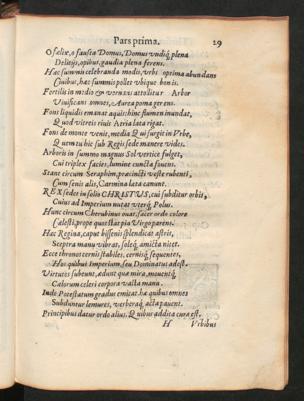 Pars prima. 29
O fælix, o fausta Domus, Domus undiq; plena
Delitijs, opibus, gaudia plena ferens.
Hæc summis celebranda modis, urbs opima abundans
Civibus, hæc summis pollet ubique bonis.
Fortilis in medio & vernans attollitur Arbor
Vivificans omnes, Aurea poma gerens.
Fons liquidis emanat aquis: hinc flumen inundat,
Quod vitreis rivis Atria lata rigat.
Fons de monte venit, media Qui surgit in Urbe,
Quem tu hic sub Regis sede manere vides.
Arboris in summo magnus Sol vertice fulget,
Cui triplex facies, lumine cuncta fovens.
Stant circum Seraphim, præcincti veste rubenti,
Cum senis alis, Carmina læta canunt.
REX sedet in solio CHRISTUS, cui subditur orbis,
Cuius ad Imperium nutat uterq; Polus.
Hunc circum Cherubinus ovat, sacer ordo colore
Cælesti, prope quos stat pia Virgo parens.
Hæc Regina, caput bissenis splendicat astris,
Sceptra manu vibrat, soleq; amicta nitet.
Ecce thronos cernis stabiles, cernisq; sequentes,
Hos quibus Imperium, seu Dominatus adest.
Virtutes subeunt, ædunt quæ mira, moventq;
Cælorum celeri corpora vasta manu.
Inde Potestatum gradus emicat: hæ quibus omnes
Subduntur lemures, verberaq; acta pavent.
Principibus datur ordo alius. Quibus addita cura est.
H Urbibus